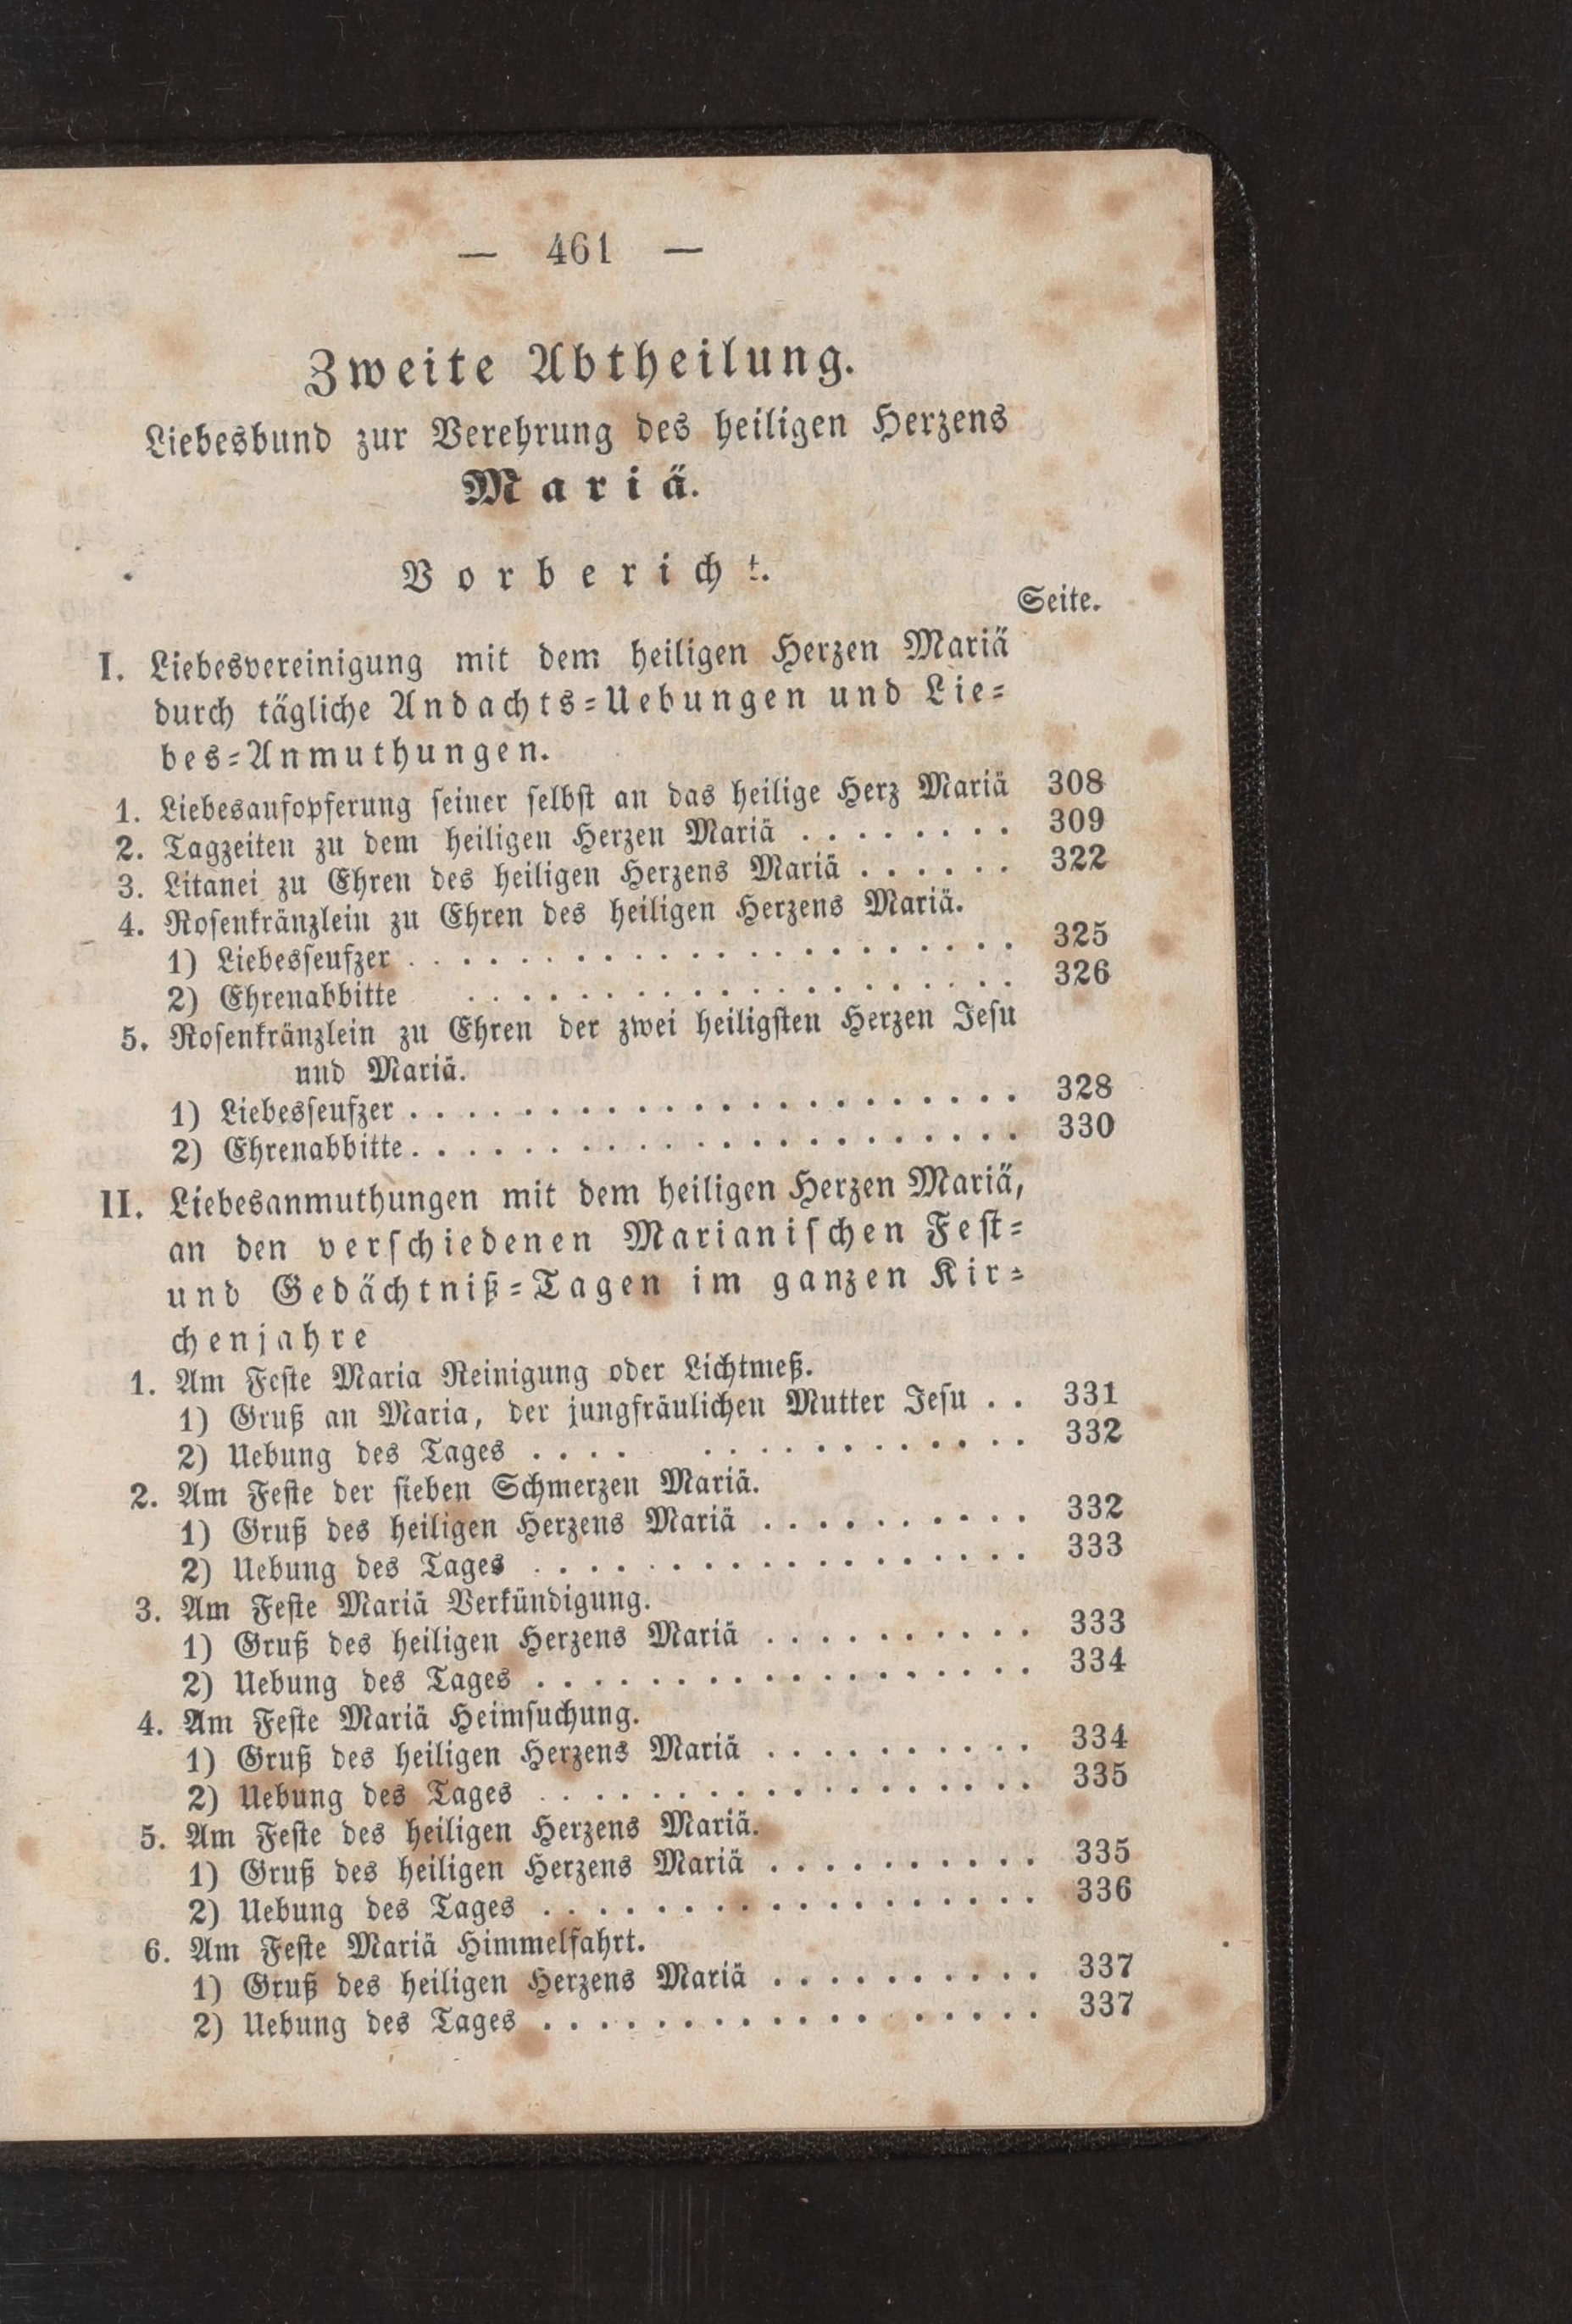 — 461 —
Zweite Abtheilung.
Liebesbund zur Verehrung des heiligen Herzens
Mariä.
Vorbericht.
Seite.
I. Liebesvereinigung mit dem heiligen Herzen Mariä
durch tägliche Andachts=Uebungen und Lie=
bes=Anmuthungen.
1. Liebesaufopferung seiner selbst an das heilige Herz Mariä 308
2. Tagzeiten zu dem heiligen Herzen Mariä . . . . . . . . 309
3. Litanei zu Ehren des heiligen Herzens Mariä . . . . . . 322
4. Rosenkränzlein zu Ehren des heiligen Herzens Mariä.
1) Liebesseufzer . . . . . . . . . . . . . . . . . . . . . . 325
2) Ehrenabbitte . . . . . . . . . . . . . . . . . . . . 326
5. Rosenkränzlein zu Ehren der zwei heiligsten Herzen Jesu
und Mariä.
1) Liebesseufzer . . . . . . . . . . . . . . . . . . . . . . 328
2) Ehrenabbitte . . . . . . . . . . . . . . . . . . . . . . 330
II. Liebesanmuthungen mit dem heiligen Herzen Mariä,
an den verschiedenen Marianischen Fest=
und Gedächtniß=Tagen im ganzen Kir=
chenjahre
1. Am Feste Maria Reinigung oder Lichtmeß.
1) Gruß an Maria, der jungfräulichen Mutter Jesu . . 331
2) Uebung des Tages . . . . . . . . . . . . . . . . 332
2. Am Feste der sieben Schmerzen Mariä.
1) Gruß des heiligen Herzens Mariä . . . . . . . . . . 332
2) Uebung des Tages . . . . . . . . . . . . . . . . . . 333
3. Am Feste Mariä Verkündigung.
1) Gruß des heiligen Herzens Mariä . . . . . . . . . . 333
2) Uebung des Tages . . . . . . . . . . . . . . . . . . 334
4. Am Feste Mariä Heimsuchung.
1) Gruß des heiligen Herzens Mariä . . . . . . . . . . 334
2) Uebung des Tages . . . . . . . . . . . . . . . . . . 335
5. Am Feste des heiligen Herzens Mariä.
1) Gruß des heiligen Herzens Mariä . . . . . . . . . . 335
2) Uebung des Tages . . . . . . . . . . . . . . . . . . 336
6. Am Feste Mariä Himmelfahrt.
1) Gruß des heiligen Herzens Mariä . . . . . . . . . . 337
2) Uebung des Tages . . . . . . . . . . . . . . . . . . 337